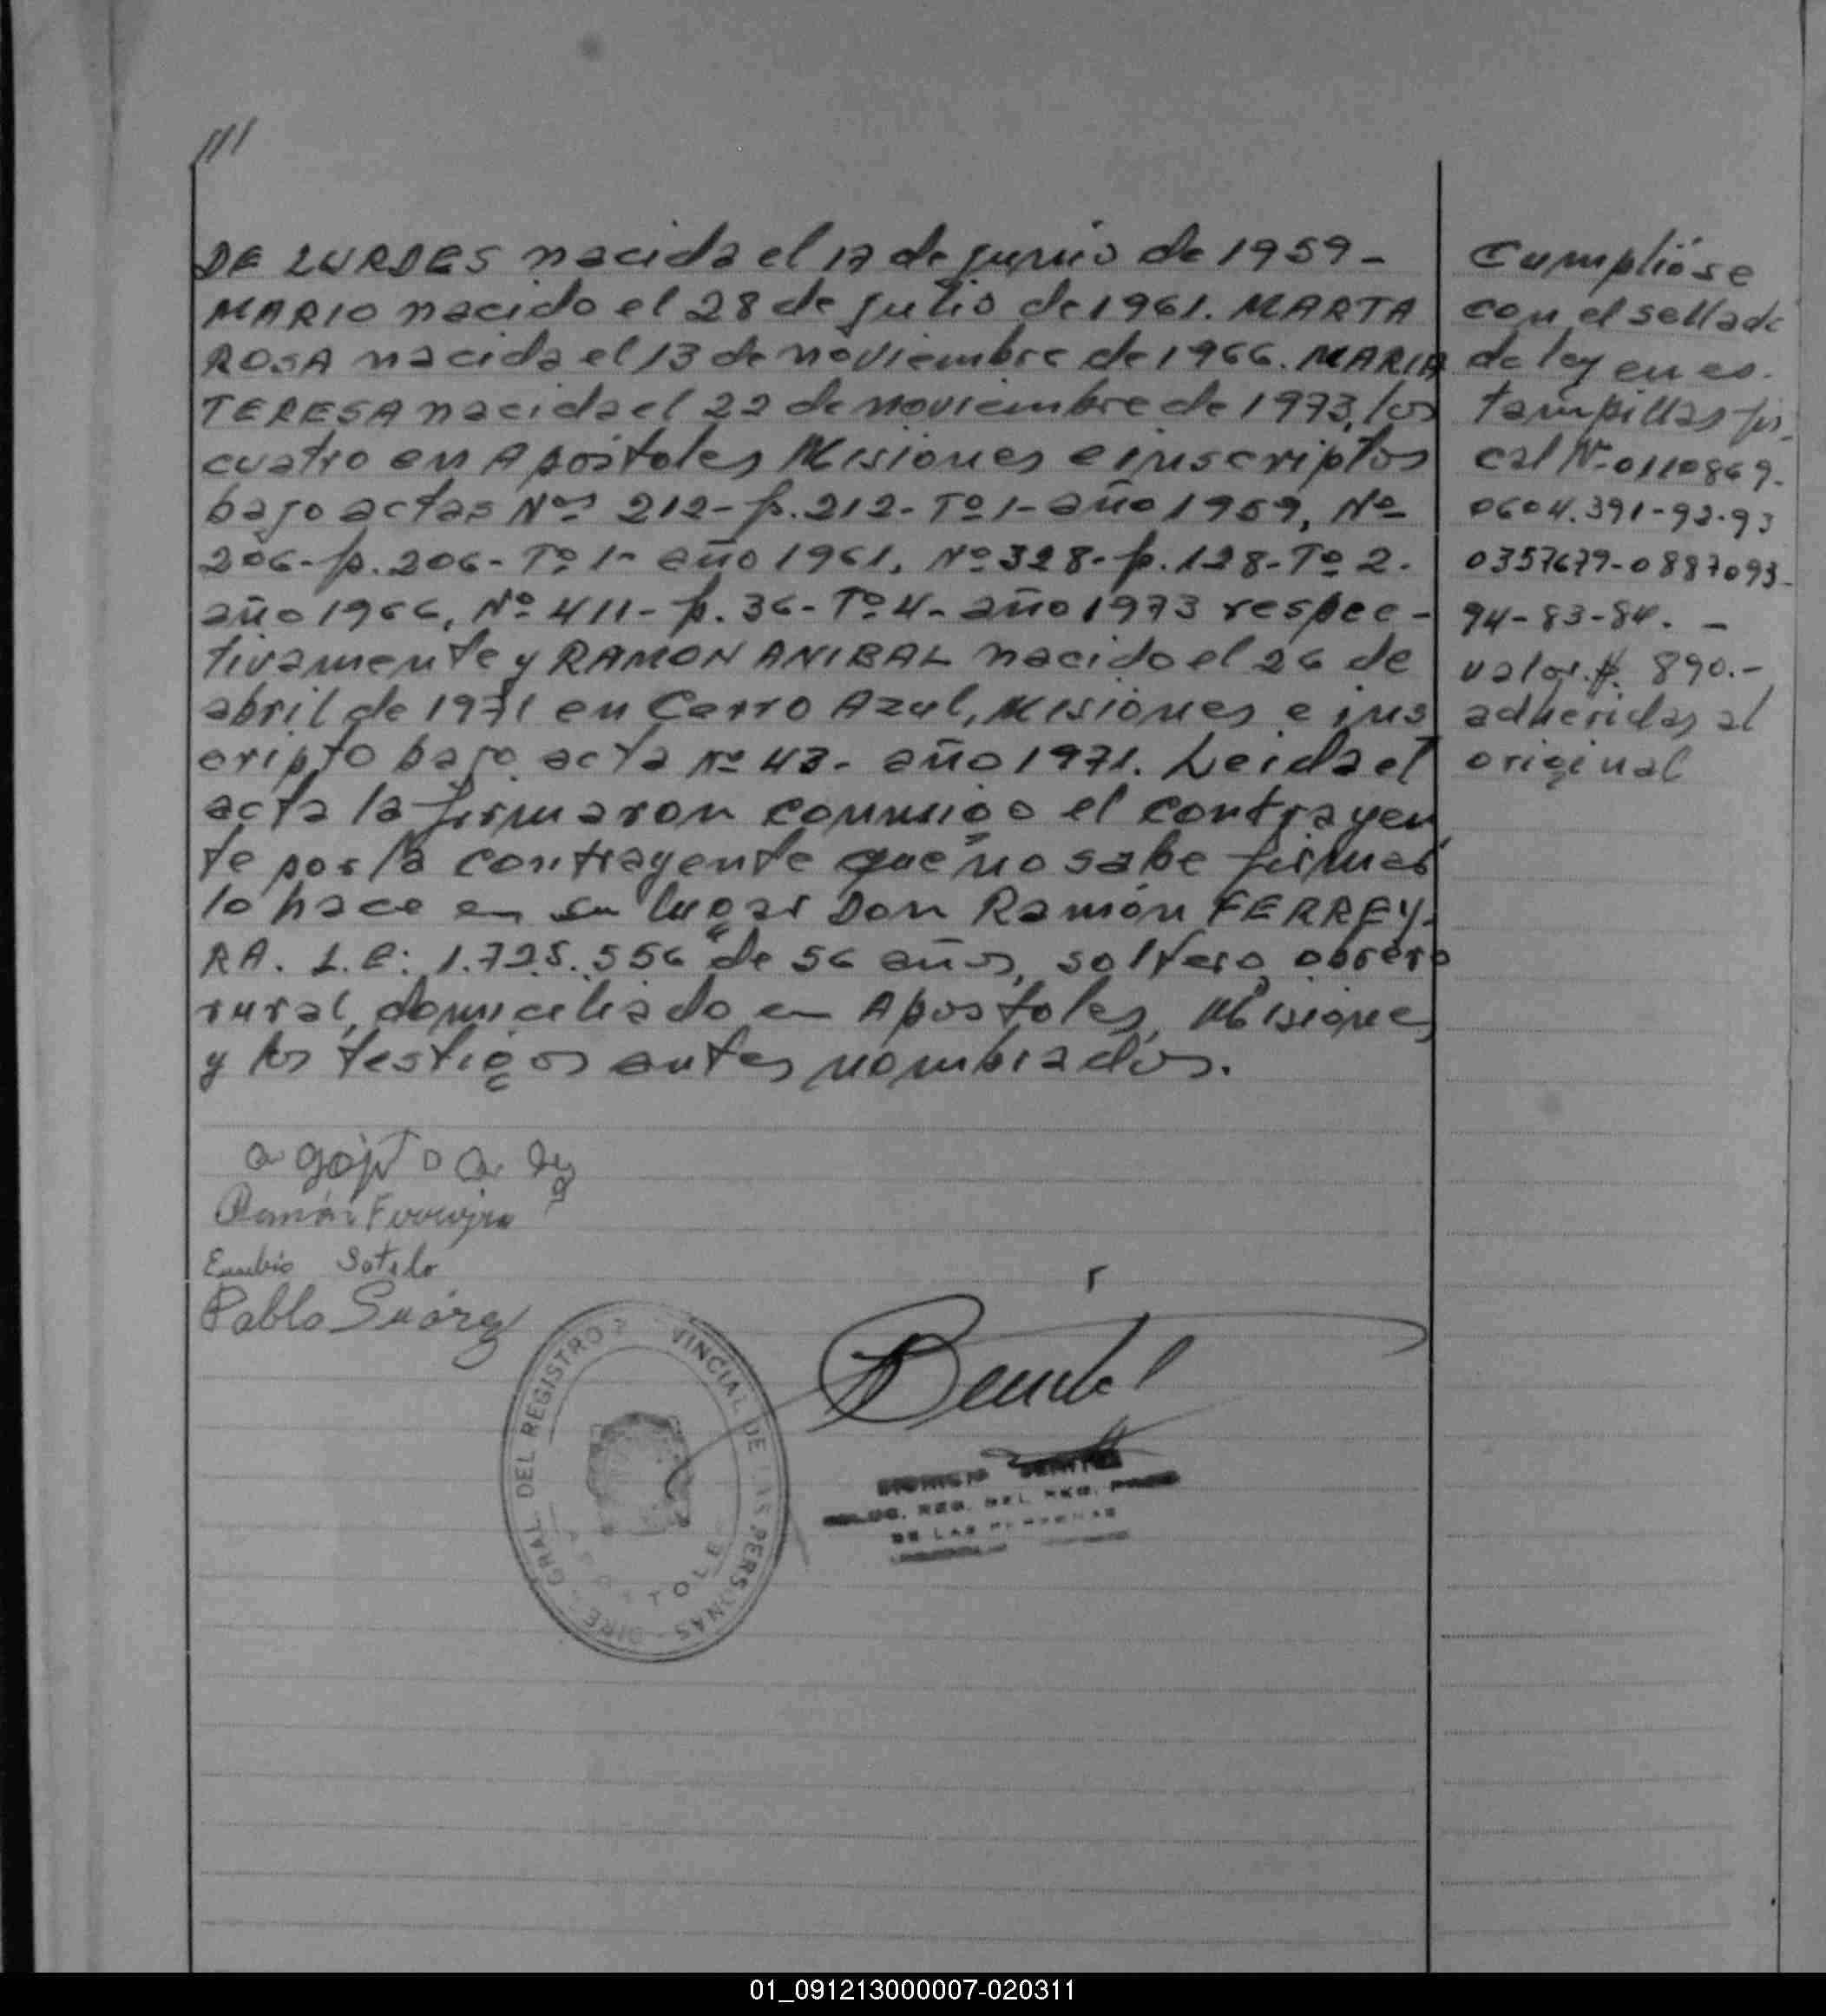 ///
DE LURDES nacida el 17 de junio de 1959-
MARIO nacido el 28 de julio de 1961. MARTA
ROSA nacida el 13 de noviembre de 1966. MARIA
TERESA nacida el 22 de noviembre de 1973, los
cuatro en Apóstoles Misiones e inscriptos
bajo actas Nos 212-p.212-Tº1-año 1959, Nº
206-p.206-Tº 1- año 1961, Nº 328-p.128-Tº 2.
año 1966, Nº 411-p.36-Tº4-año 1973 respec-
tivamente y RAMON ANIBAL nacido el 26 de
abril de 1971 en Cerro Azul, Misiones e ins
cripto bajo acta Nº 43- año 1971. Leida el
acta la firmaron conmigo el contrayen
te por la contrayente que no sabe firmar
lo hace en su lugar Don Ramón FERREY-
RA. L.E: 1.725.556 de 56 años, soltero, obrero
rural, domiciliado en Apostoles, Misiones
y los testigos antes nombrados.
Cumplióse
con el sellado
de ley en es-
tampillas fis-
cal Nº 0110869-
0604.391-92-93
0357679-0887093-
94-83-84. -
valor $ 890.-
adheridas al
original
Ramón Ferreyra
Eusebio Sotelo
Pablo Suárez
GRAL. DEL REGISTRO VINCIAL DE LAS PERSONAS - DIRE
APOSTOLES
REG. DEL
DE LAS PERSONAS
01_091213000007-020311